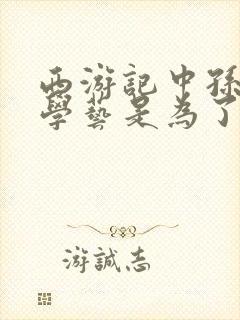 西游記中孫
學藝是為了
游誠志